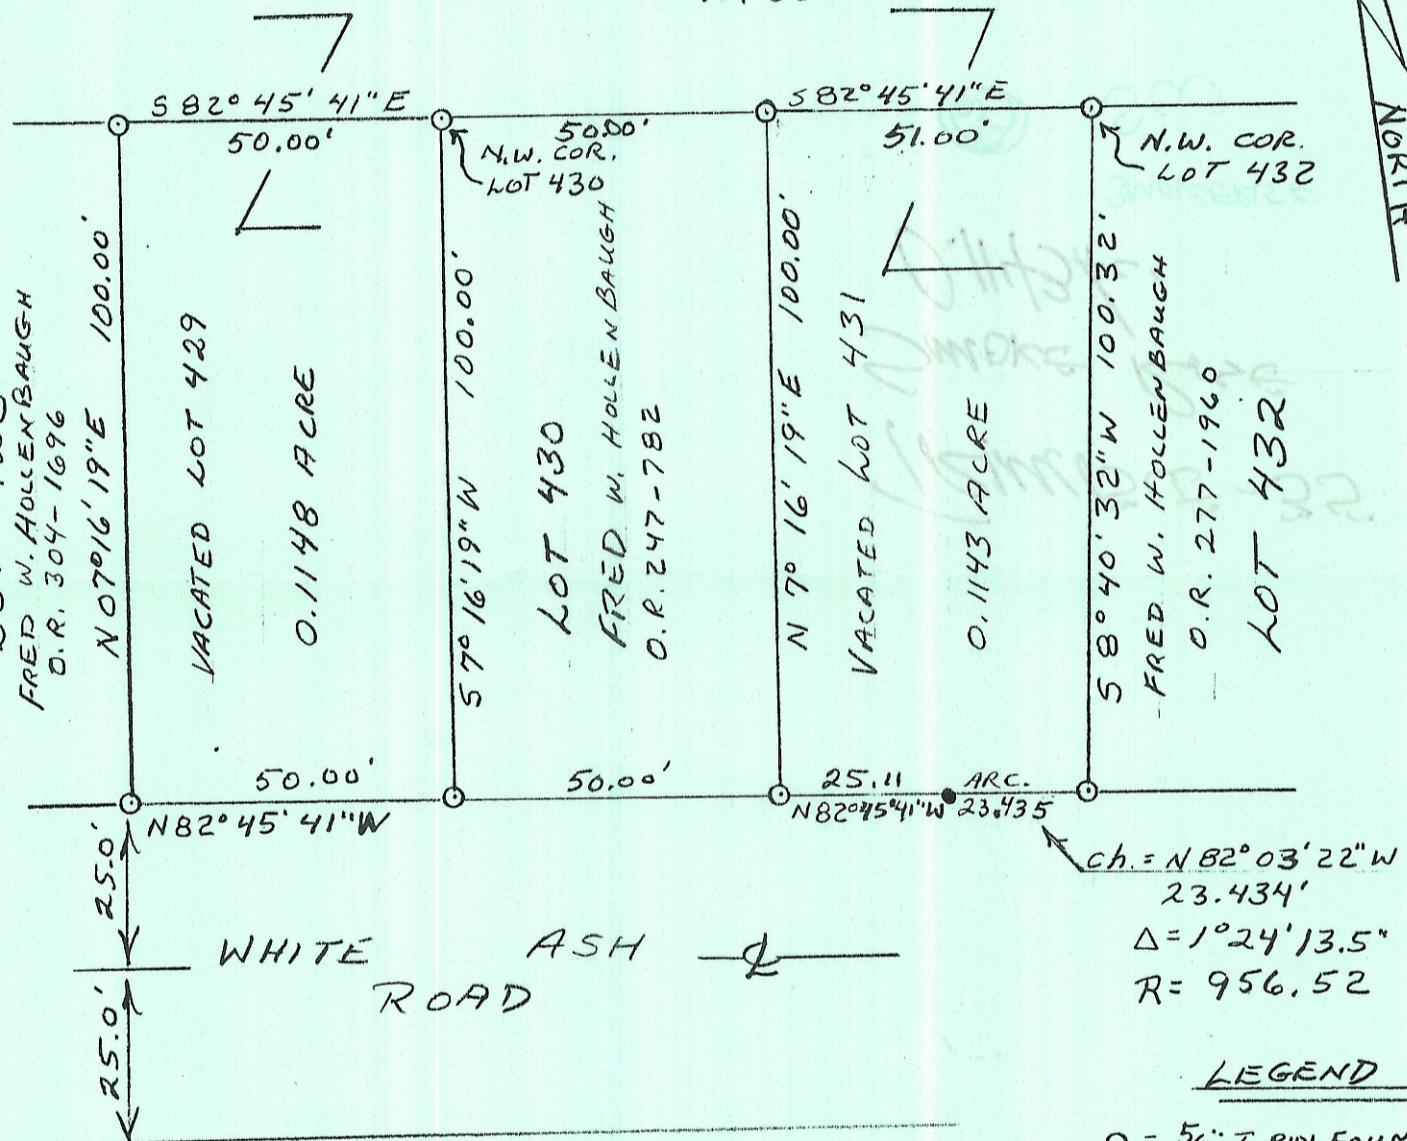 NORTH
S 82° 45' 41" E
50.00'
50.00'
N.W. COR.
LOT 430
S 82° 45' 41" E
51.00'
N.W. COR.
LOT 432
FRED W. HOLLENBAUGH
O.R. 304-1696
N 07° 16' 19" E 100.00'
VACATED LOT 429
0.1148 ACRE
S 7° 16' 19" W 100.00'
LOT 430
FRED W. HOLLENBAUGH
O.R. 247-782
N 7° 16' 19" E 100.00'
VACATED LOT 431
0.1143 ACRE
S 8° 40' 32" W 100.32'
FRED W. HOLLENBAUGH
O.R. 277-1960
LOT 432
50.00'
N 82° 45' 41" W
50.00'
25.11
N 82° 45' 41" W
ARC.
23.435
ch. = N 82° 03' 22" W
23.434'
Δ = 1° 24' 13.5"
R = 956.52
25.0'
WHITE ASH
ROAD
25.0'
LEGEND